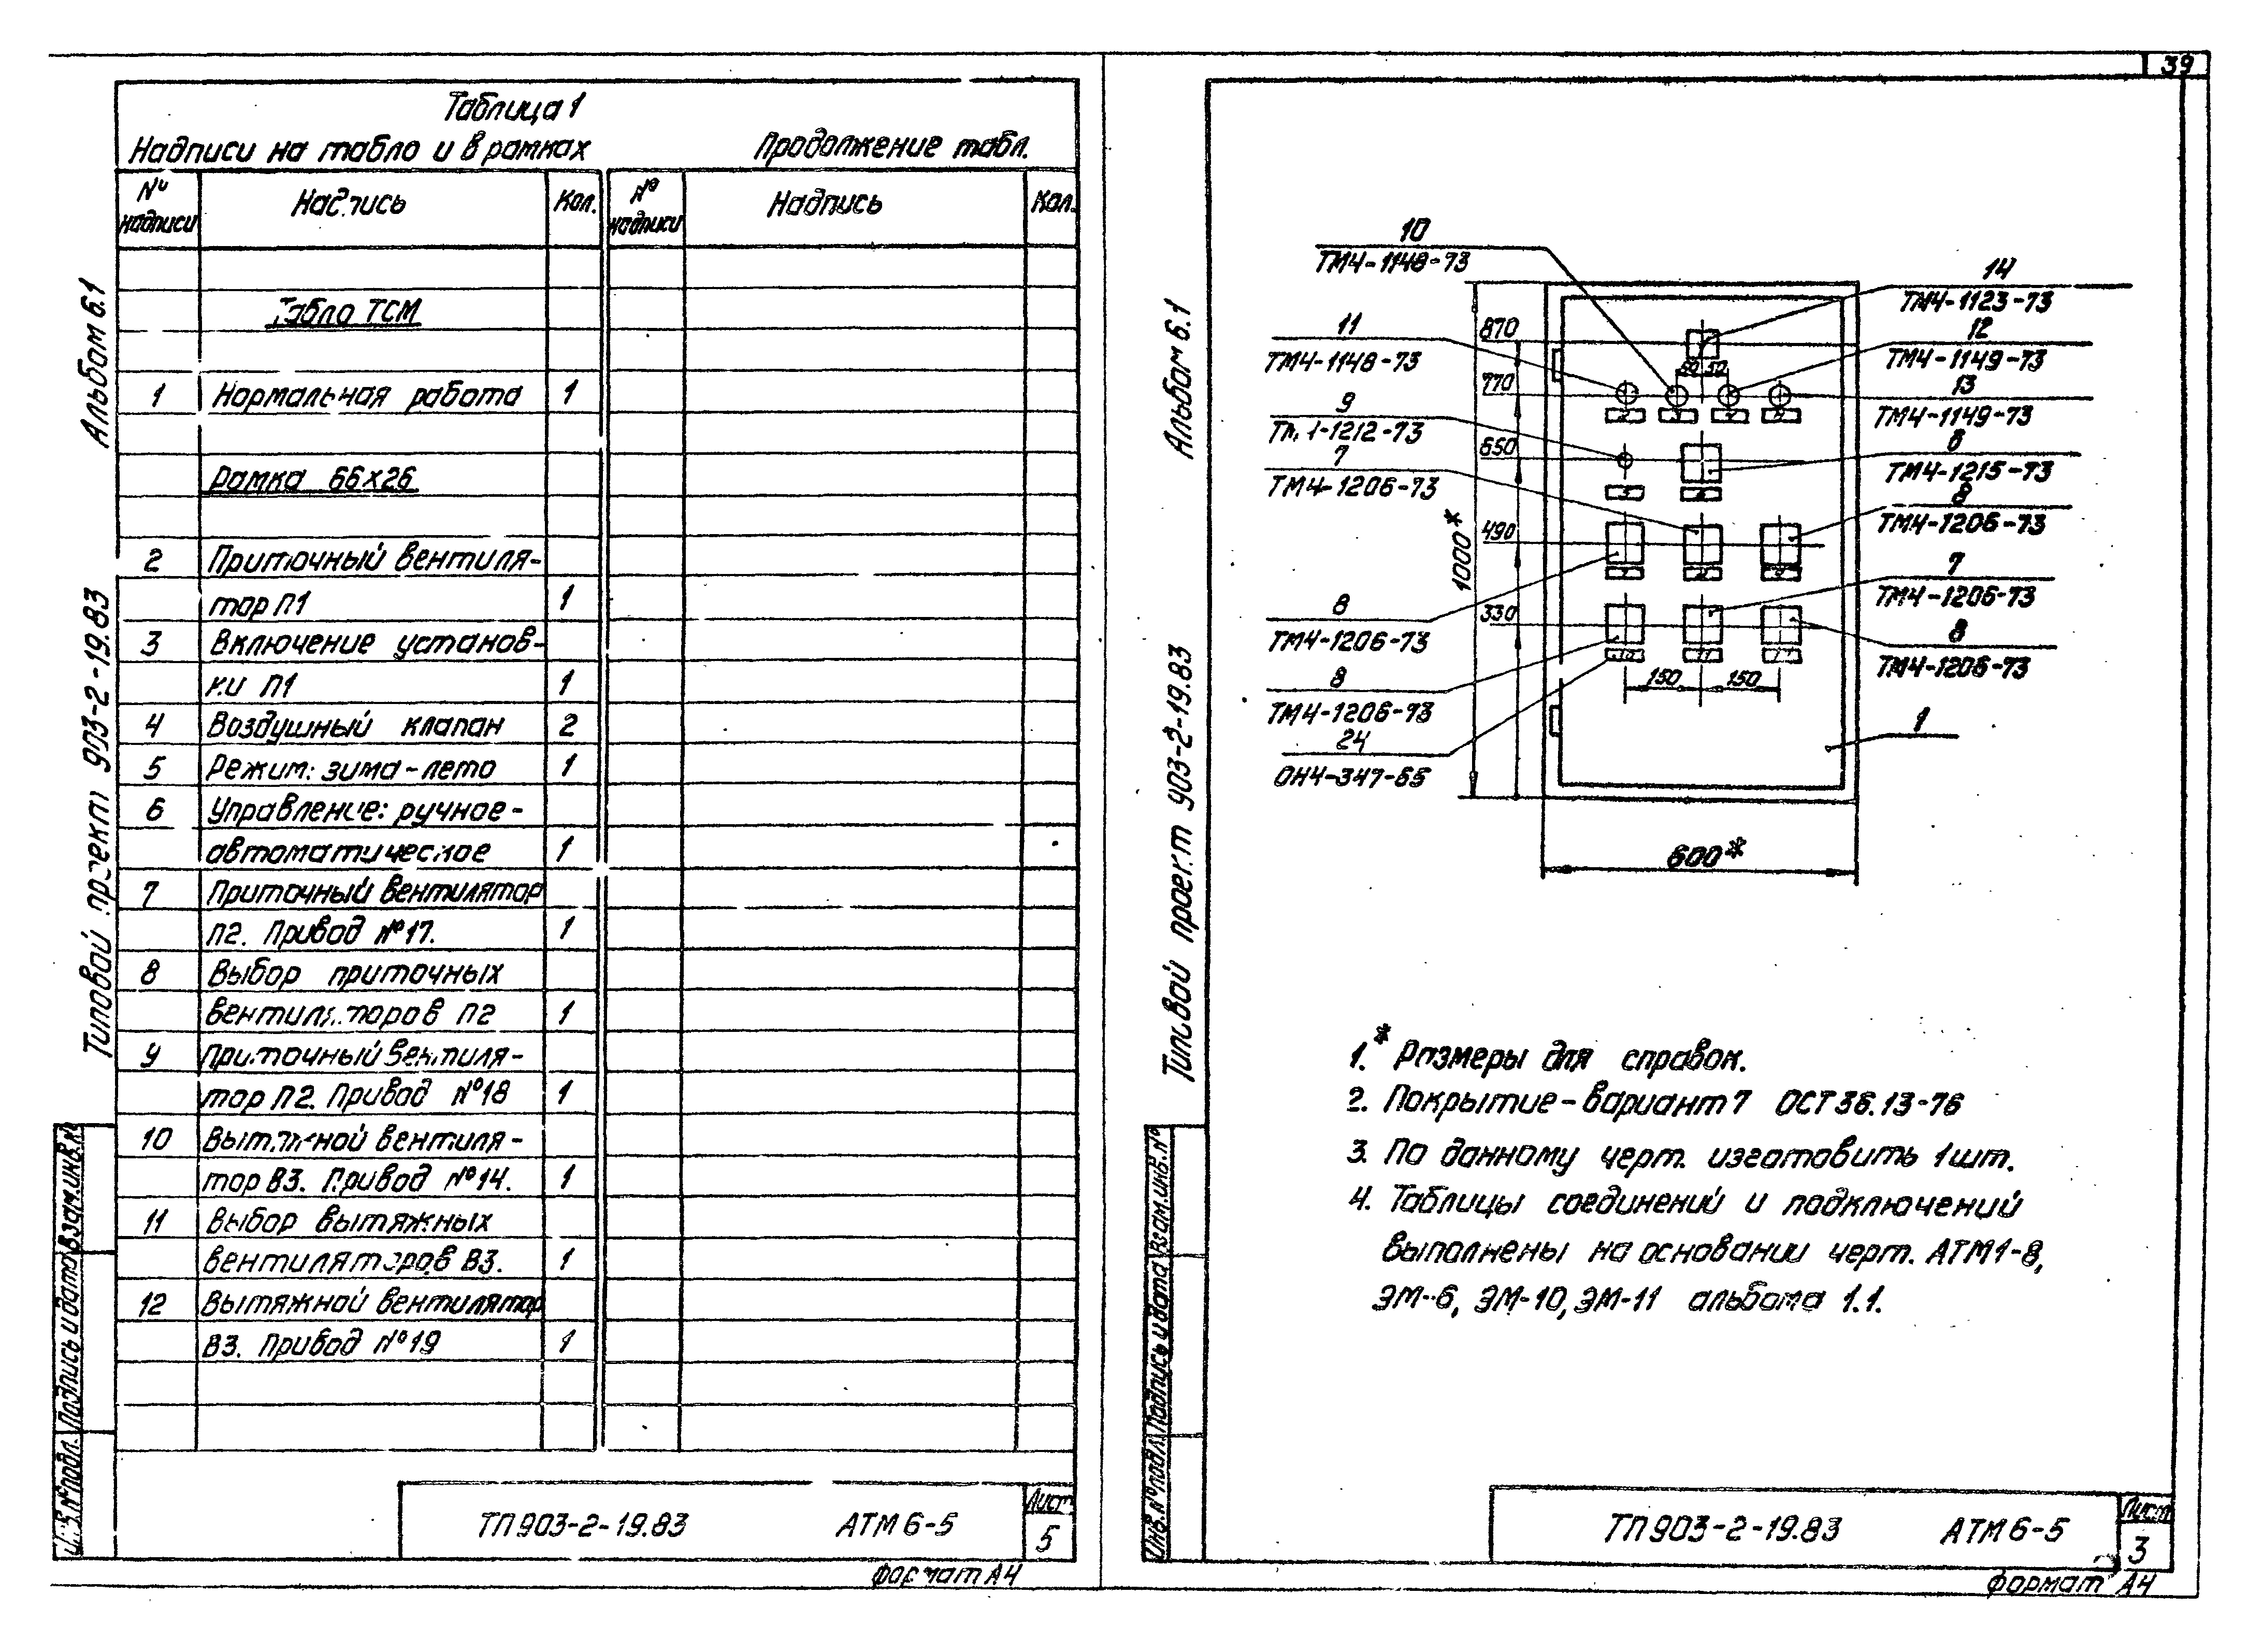 39
Таблица 1
Надписи на табло и в рамках
Продолжение табл.
№ надписи
Надпись
Кол.
№ надписи
Надпись
Кол.
Табло ТСМ
1 Нормальная работа 1
Рамка 66х26
2 Приточный вентиля-
тор П1 1
3 Включение установ-
ки П1 1
4 Воздушный клапан 2
5 Режим: зима-лето 1
6 Управление: ручное-
автоматическое 1
7 Приточный вентилятор
П2. Привод №17. 1
8 Выбор приточных
вентиляторов П2 1
9 Приточный вентиля-
тор П2. Привод №18 1
10 Вытяжной вентиля-
тор В3. Привод №14. 1
11 Выбор вытяжных
вентиляторов В3. 1
12 Вытяжной вентилятор
В3. Привод №19 1
Альбом 6.1
Типовой проект 903-2-19.83
Взам.инв.№
Подпись и дата
Инв.№ подл.
ТП 903-2-19.83 АТМ 6-5
Лист
5
Формат А4
Альбом 6.1
Типовой проект 903-2-19.83
Взам.инв.№
Подпись и дата
Инв.№ подл.
10
ТМ4-1148-73
11
ТМ4-1148-73
9
ТМ4-1212-73
7
ТМ4-1206-73
8
ТМ4-1206-73
8
ТМ4-1206-73
24
ОН4-347-65
14
ТМ4-1123-73
12
ТМ4-1149-73
13
ТМ4-1149-73
6
ТМ4-1215-73
8
ТМ4-1206-73
7
ТМ4-1206-73
8
ТМ4-1206-73
1
870
770
650
490
330
1000*
150 150
600*
1.* Размеры для справок.
2. Покрытие-вариант 7 ОСТ 36.13-76
3. По данному черт. изготовить 1шт.
4. Таблицы соединений и подключений
выполнены на основании черт. АТМ1-8,
ЭМ-6, ЭМ-10, ЭМ-11 альбома 1.1.
ТП 903-2-19.83 АТМ 6-5
Лист
3
Формат А4